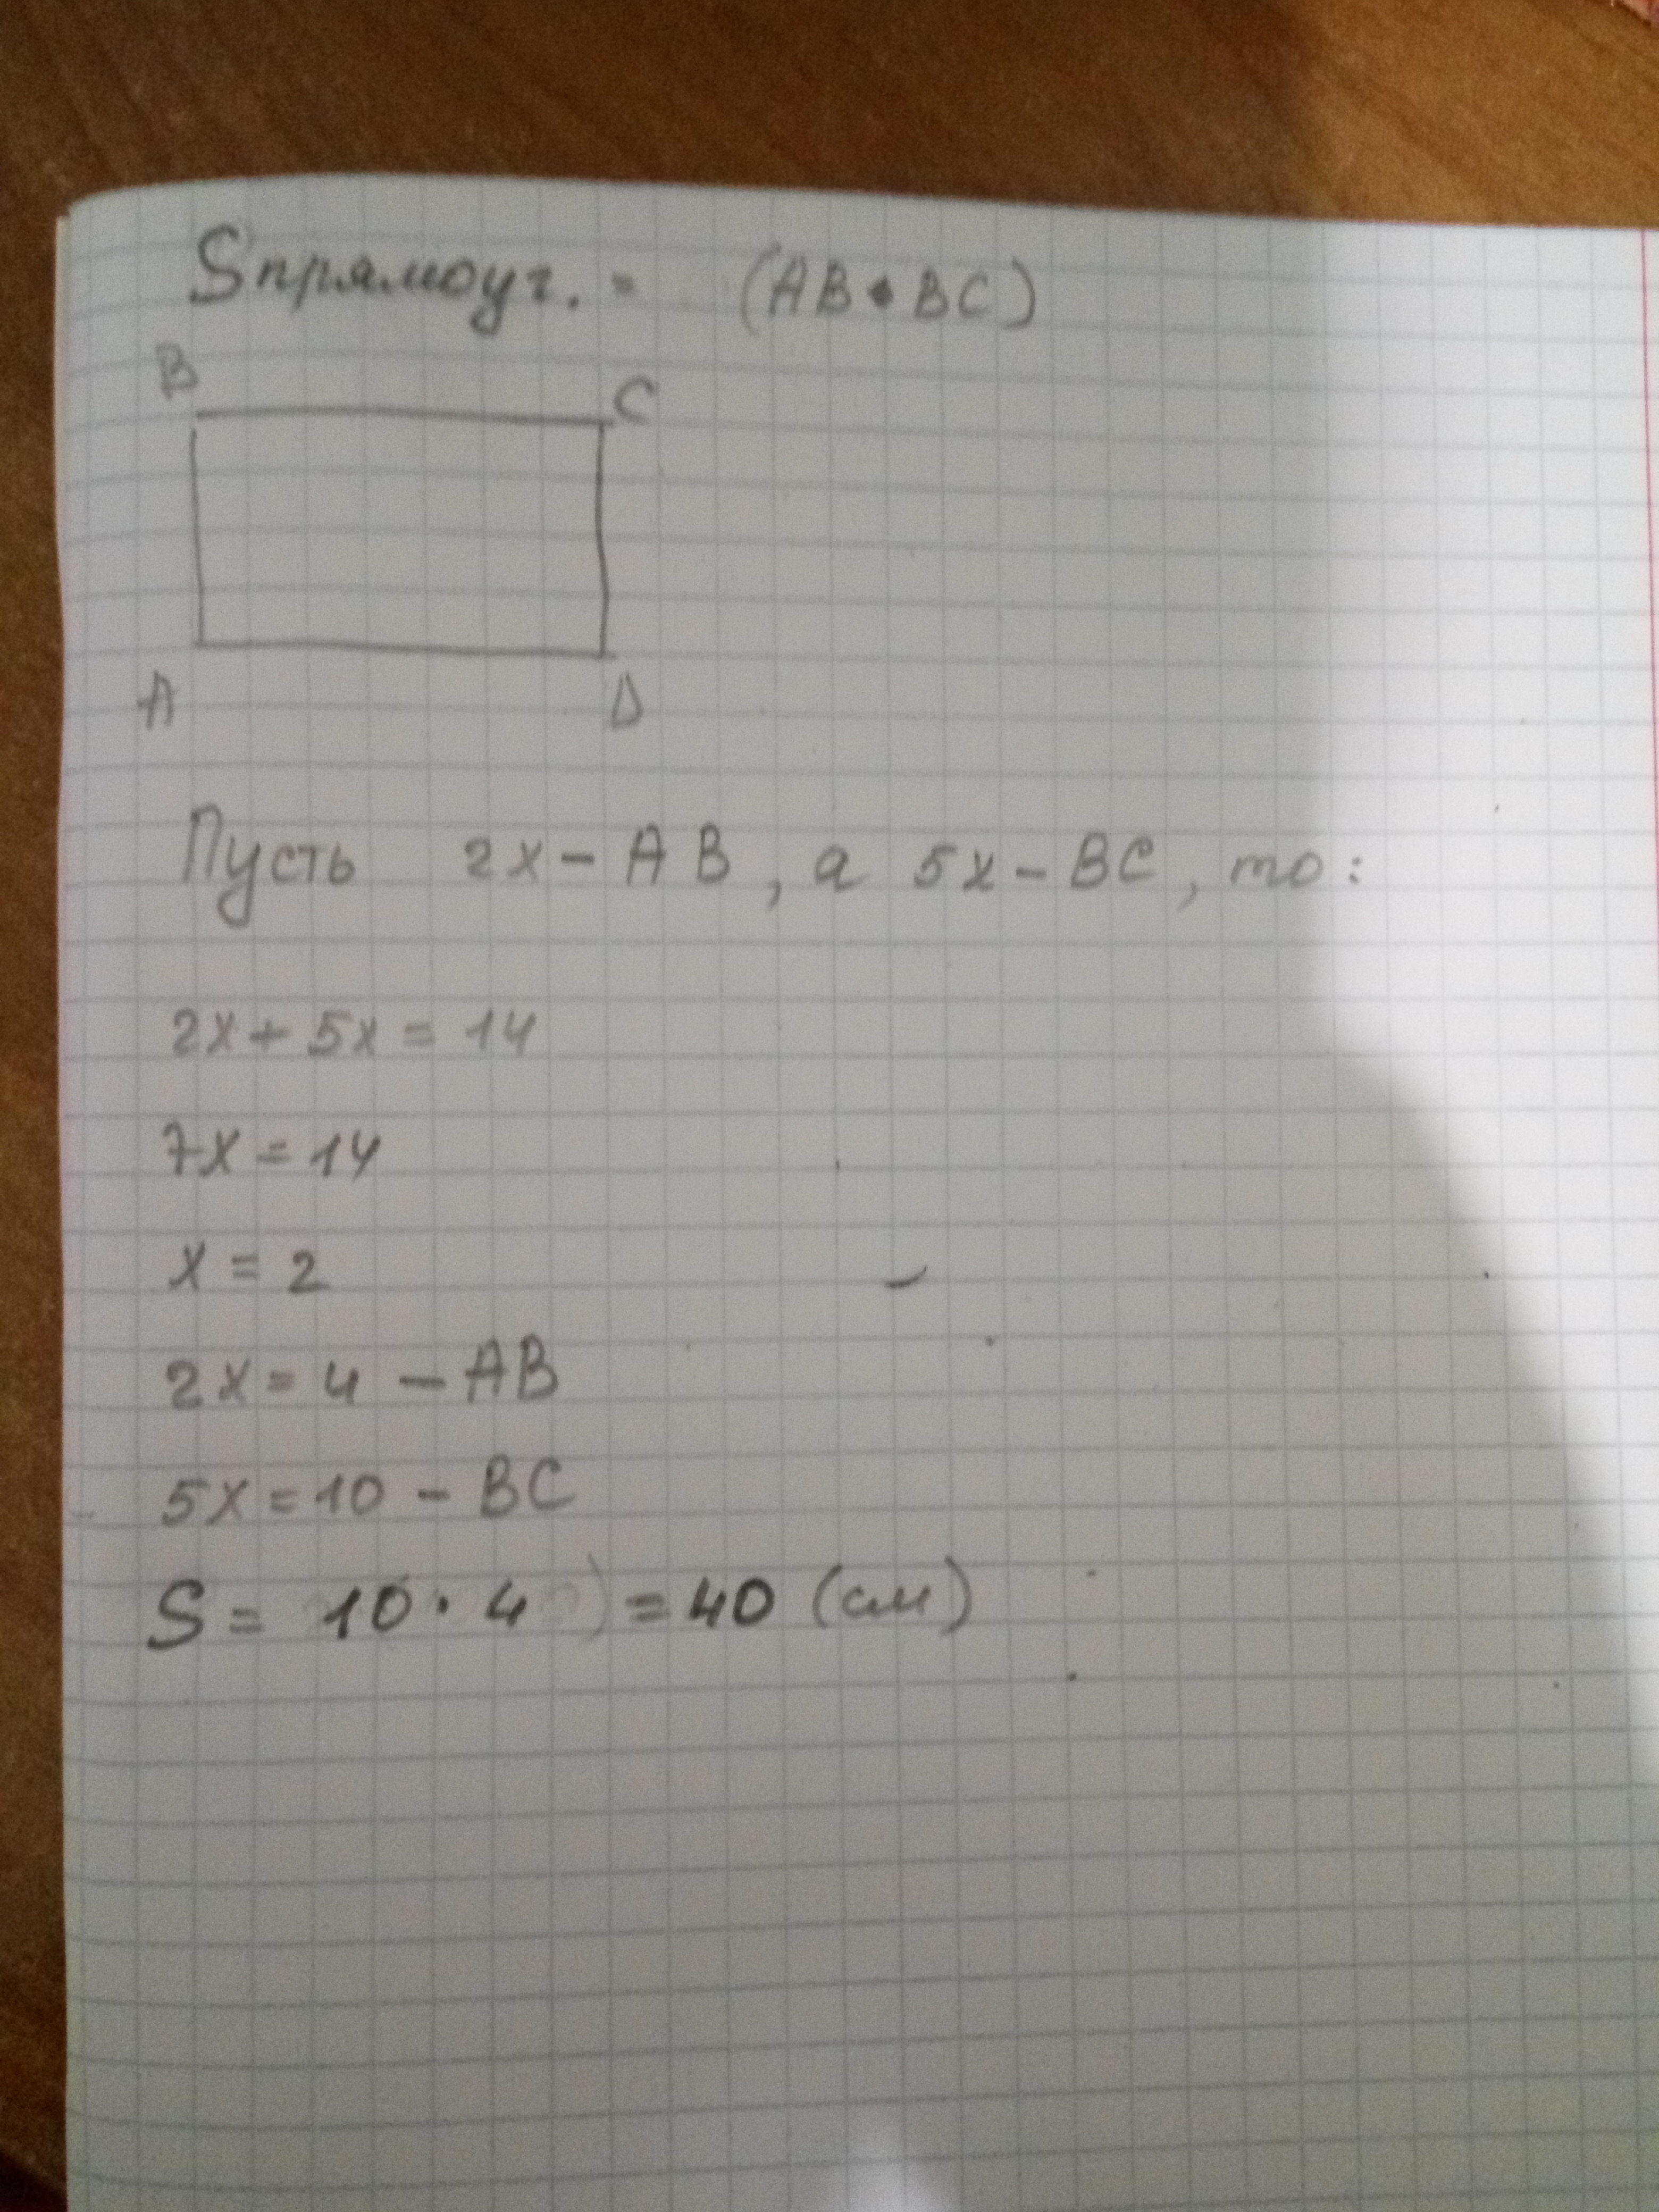 Sпрямоуг. = (AB • BC)
B C
A D
Пусть 2x - AB, а 5x - BC, то:
2x + 5x = 14
7x = 14
x = 2
2x = 4 - AB
5x = 10 - BC
S = 10 · 4 ) = 40 (см)